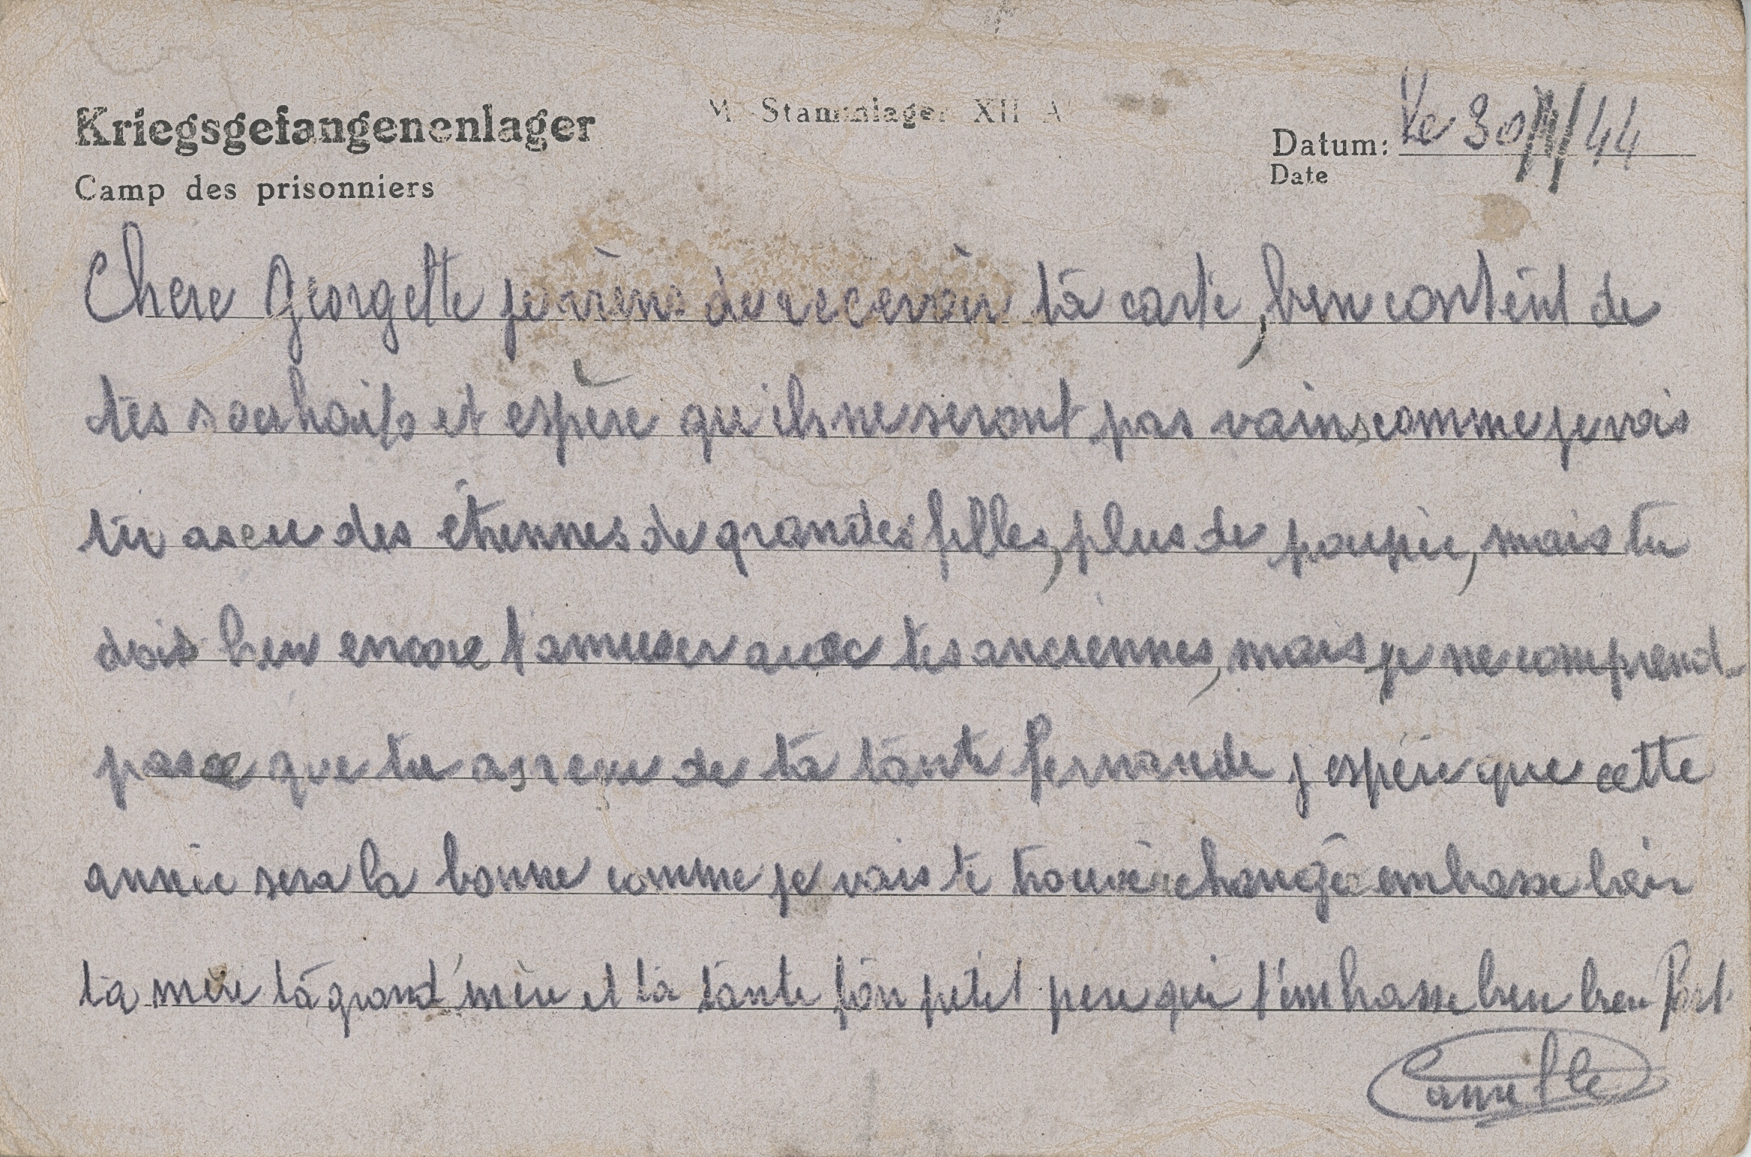 Kriegsgefangenenlager
M. Stammlager XII A
Datum: Le 30/1/44
Camp des prisonniers
Date
Chere Georgette je viens de recevoir ta carte, bien contént de
tes souhaits et espère qu'ils ne seront pas vains comme je vois
tu as eu des étrennes de grandes filles, plus de poupée, mais tu
dois bien encore t'amuser avec tes anciennes, mais je ne comprend
pas ce que tu as reçu de ta tante Fernande j'espère que cette
année sera la bonne comme je vais te trouvé changé embrasse bien
ta mère ta grand'mère et ta tante ton petit pere qui t'embrasse bien bien fort
Camille